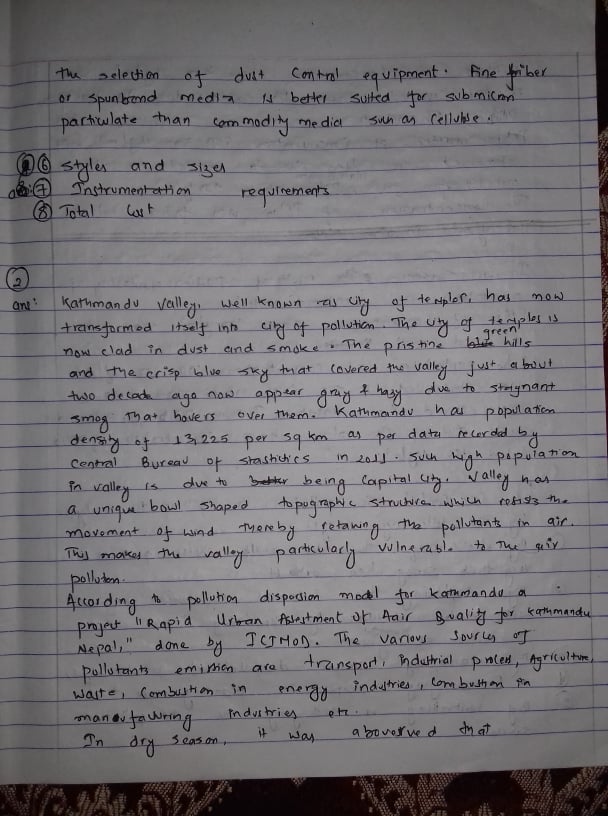 the selection of dust control equipment. Fine friber
or spunbond media is better suited for submicron
particulate than commodity media such as cellulose.
⑥ styles and sizes
⑦ Instrumentation requirements
⑧ Total Cost
②
ans: Kathmandu Valley, well known as city of temples, has now
transformed itself into city of pollution. The city of temples is
now clad in dust and smoke. The pristine green hills
and the crisp blue sky that covered the valley just about
two decade ago now appear gray & hazy due to stagnant
smog that hovers over them. Kathmandu has population
density of 13,225 per sq km as per data recorded by
Central Bureau of stastictics in 2011. Such high population
in valley is due to being Capital city. Valley has
a unique bowl shaped topographic structure which the
movement of wind thereby retaining the pollutants in air.
This makes the valley particularly vulnerable to the air
polluton.
According to pollution dispersion model for kathmandu a
project "Rapid Urban Assestment of Aair Quality for kathmandu
Nepal," done by ICIMOD. The various sources of
pollutants emission are transport, industrial process, Agriculture,
waste, combustion in energy industries, combustion in
industries etc.
In dry season, it was that